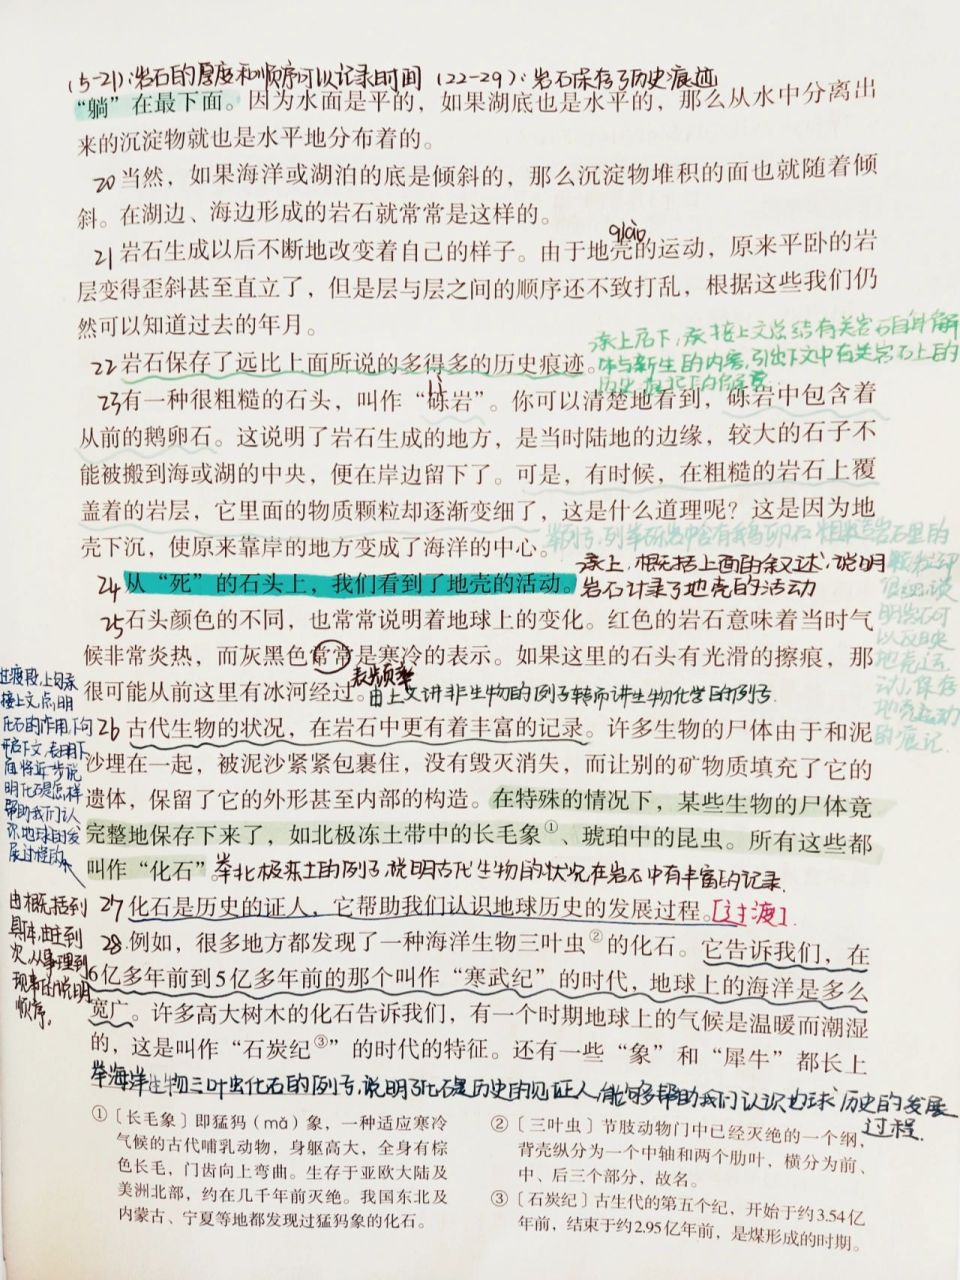 (5-21):岩石的厚度和顺序可以记录时间 (22-29):岩石保存了历史痕迹
“躺”在最下面。因为水面是平的，如果湖底也是水平的，那么从水中分离出
来的沉淀物就也是水平地分布着的。
20当然，如果海洋或湖泊的底是倾斜的，那么沉淀物堆积的面也就随着倾
斜。在湖边、海边形成的岩石就常常是这样的。
qiào
21岩石生成以后不断地改变着自己的样子。由于地壳的运动，原来平卧的岩
层变得歪斜甚至直立了，但是层与层之间的顺序还不致打乱，根据这些我们仍
然可以知道过去的年月。
22岩石保存了远比上面所说的多得多的历史痕迹。
承上启下，承接上文总结有关岩石自身解
体与新生的内容，引出下文中有关岩石上的
lì
23有一种很粗糙的石头，叫作“砾岩”。你可以清楚地看到，砾岩中包含着
从前的鹅卵石。这说明了岩石生成的地方，是当时陆地的边缘，较大的石子不
能被搬到海或湖的中央，便在岸边留下了。可是，有时候，在粗糙的岩石上覆
盖着的岩层，它里面的物质颗粒却逐渐变细了，这是什么道理呢？这是因为地
壳下沉，使原来靠岸的地方变成了海洋的中心。
举例子，列举砾岩中含有鹅卵石 粗糙岩石里的
颗粒却
变细，说
明岩石可
以反映
地壳运
动，保存
地壳运动
的痕记.
24从“死”的石头上，我们看到了地壳的活动。
承上，概括上面的叙述，说明
岩石计录了地壳的活动
25石头颜色的不同，也常常说明着地球上的变化。红色的岩石意味着当时气
候非常炎热，而灰黑色常常是寒冷的表示。如果这里的石头有光滑的擦痕，那
很可能从前这里有冰河经过。
表频率
由上文讲非生物的例子转而讲生物化学的例子.
过渡段，上句承
接上文，点明
化石的作用，下句
开启下文，表明下
面将近一步说
明化石是怎样
帮助我们认
识地球的发
展过程的
26古代生物的状况，在岩石中更有着丰富的记录。许多生物的尸体由于和泥
沙埋在一起，被泥沙紧紧包裹住，没有毁灭消失，而让别的矿物质填充了它的
遗体，保留了它的外形甚至内部的构造。在特殊的情况下，某些生物的尸体竟
完整地保存下来了，如北极冻土带中的长毛象①、琥珀中的昆虫。所有这些都
叫作“化石”。
举北极冻土的例子，说明古代生物的状况在岩石中有丰富的记录.
27化石是历史的证人，它帮助我们认识地球历史的发展过程。[过渡].
由概括到
具体，由主到
次，从事理到
现象的说明
顺序.
28.例如，很多地方都发现了一种海洋生物三叶虫②的化石。它告诉我们，在
6亿多年前到5亿多年前的那个叫作“寒武纪”的时代，地球上的海洋是多么
宽广。许多高大树木的化石告诉我们，有一个时期地球上的气候是温暖而潮湿
的，这是叫作“石炭纪③”的时代的特征。还有一些“象”和“犀牛”都长上
举海洋生物三叶虫化石的例子，说明了化石是历史的见证人，能够帮助我们认识地球历史的发展
过程.
①〔长毛象〕即猛犸（mǎ）象，一种适应寒冷
气候的古代哺乳动物，身躯高大，全身有棕
色长毛，门齿向上弯曲。生存于亚欧大陆及
美洲北部，约在几千年前灭绝。我国东北及
内蒙古、宁夏等地都发现过猛犸象的化石。
②〔三叶虫〕节肢动物门中已经灭绝的一个纲，
背壳纵分为一个中轴和两个肋叶，横分为前、
中、后三个部分，故名。
③〔石炭纪〕古生代的第五个纪，开始于约3.54亿
年前，结束于约2.95亿年前，是煤形成的时期。